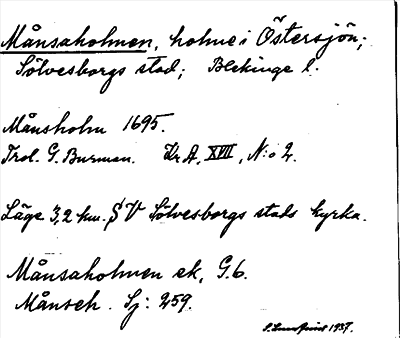 Månsaholmen, holme i Östersjön;
Sölvesborgs stad; Blekinge l.
Månsholm 1695.
Trol. G. Burman. Kr A. XVIII, N:o 2.
Läge 3,2 km. S V Sölvesborgs stads kyrka.
Månsaholmen ek. G.6.
Månseh. Sj: 259.
1937.